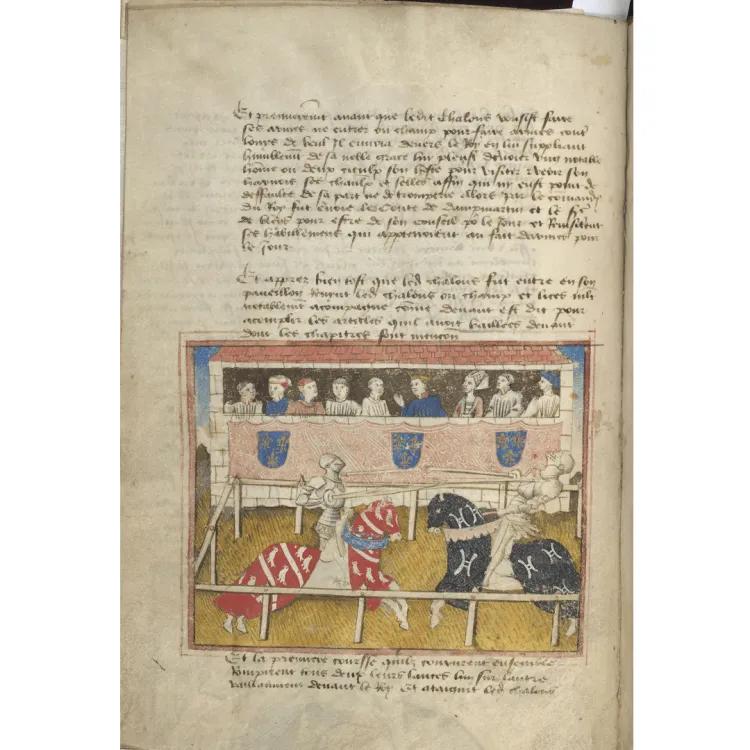 Et premierement avant que ledit Chalons voulsist faire
ses armes ne entrer ou champ pour faire armes cont
louys de beul Il envoia devers le Roy en luy suppliant
humblement de sa noble grace luy pleust denvoier ung notable
homme ou deux pour visiter Reveoir son
harnois ses et selles affin quil ny eust point de
de sa part ne de tromperie Alors par le
du Roy fut envoie le Conte de Dampmartin et le Sr
de pour estre de son conseil po le Jour et
ses habillemens qui appartenoient au fait darmes pour
le Jour
Et apprez bien tost que led chalons fut entre en son
paveillon led chalons ou champ et lices
notablement acompagne comme devant est dit pour
acomplir les articles quil avoit baillees devant
dont les chapitres font mencon
Et la premiere coursse quilz coururent ensemble
Rompirent tous deux leurs lances lun sur lautre
vaillamment devant le Roy Et ataignit led chalons